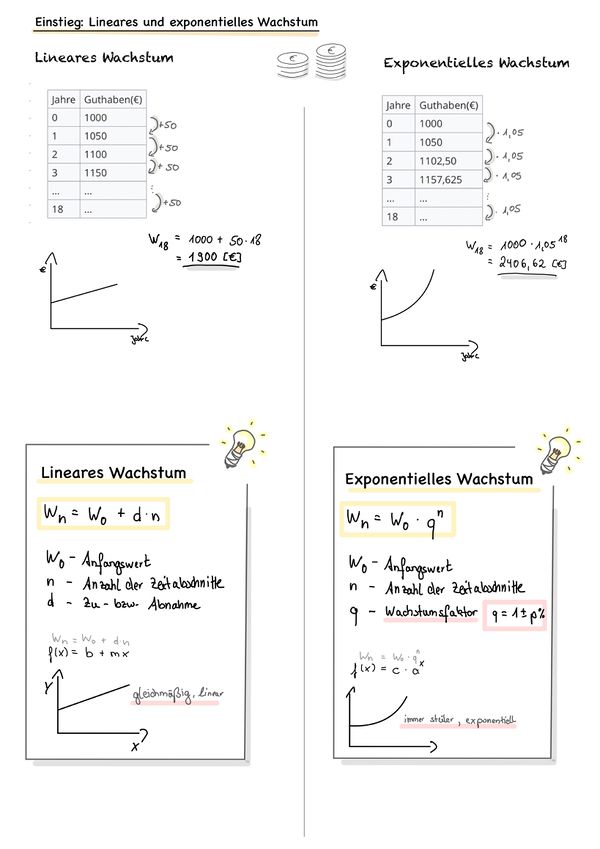 Einstieg: Lineares und exponentielles Wachstum
Lineares Wachstum
€ €
Jahre Guthaben(€)
0 1000
1 1050
2 1100
3 1150
... ...
18 ...
+50
+50
+50
⋮
+50
W₁₈ = 1000 + 50 · 18
= 1900 [€]
€
Jahre
Exponentielles Wachstum
Jahre Guthaben(€)
0 1000
1 1050
2 1102,50
3 1157,625
... ...
18 ...
· 1,05
· 1,05
· 1,05
⋮
· 1,05
W₁₈ = 1000 · 1,05¹⁸
= 2406,62 [€]
€
Jahre
Lineares Wachstum
Wₙ = W₀ + d · n
W₀ - Anfangswert
n - Anzahl der Zeitabschnitte
d - Zu- bzw. Abnahme
Wₙ = W₀ + d · n
f(x) = b + mx
Y
gleichmäßig, linear
X
Exponentielles Wachstum
Wₙ = W₀ · qⁿ
W₀ - Anfangswert
n - Anzahl der Zeitabschnitte
q - Wachstumsfaktor q = 1 ± p%
Wₙ = W₀ · qⁿ
f(x) = c · aˣ
immer steiler, exponentiell